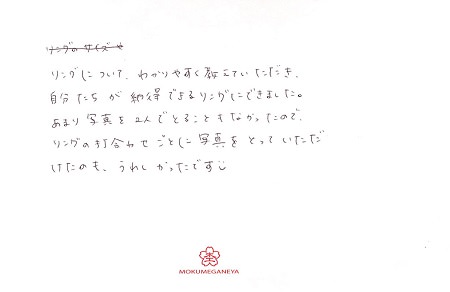 リングのサイズや
リングについて、わかりやすく教えていただき、
自分たちが納得できるリングにできました。
あまり写真を2人でとることもなかったので、
リングの打合わせごとに写真をとっていただ
けたのも、うれしかったです
MOKUMEGANEYA